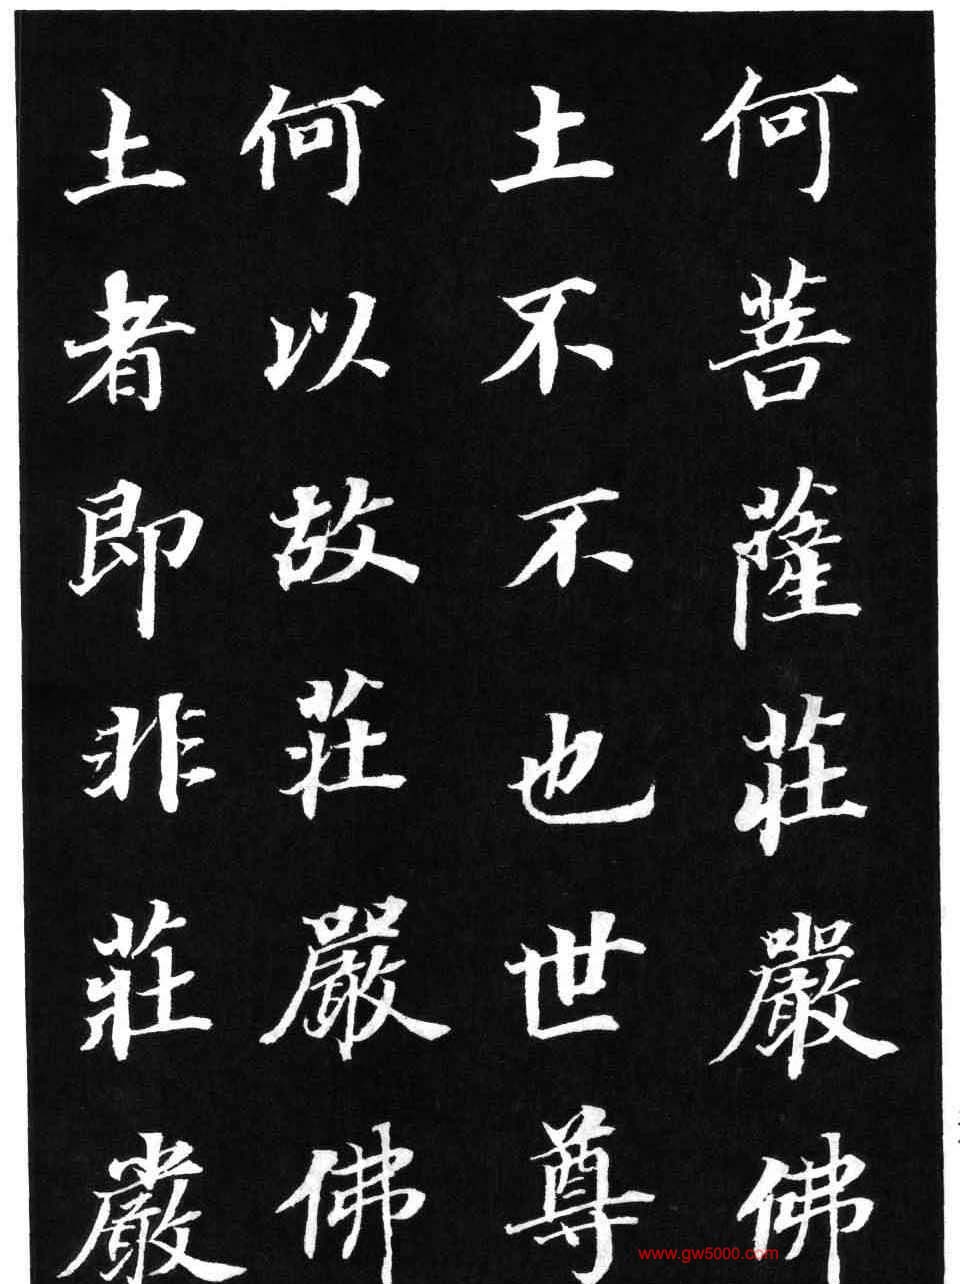 何菩薩莊嚴佛
土不不也世尊
何以故莊嚴佛
土者即非莊嚴
www.gw5000.com